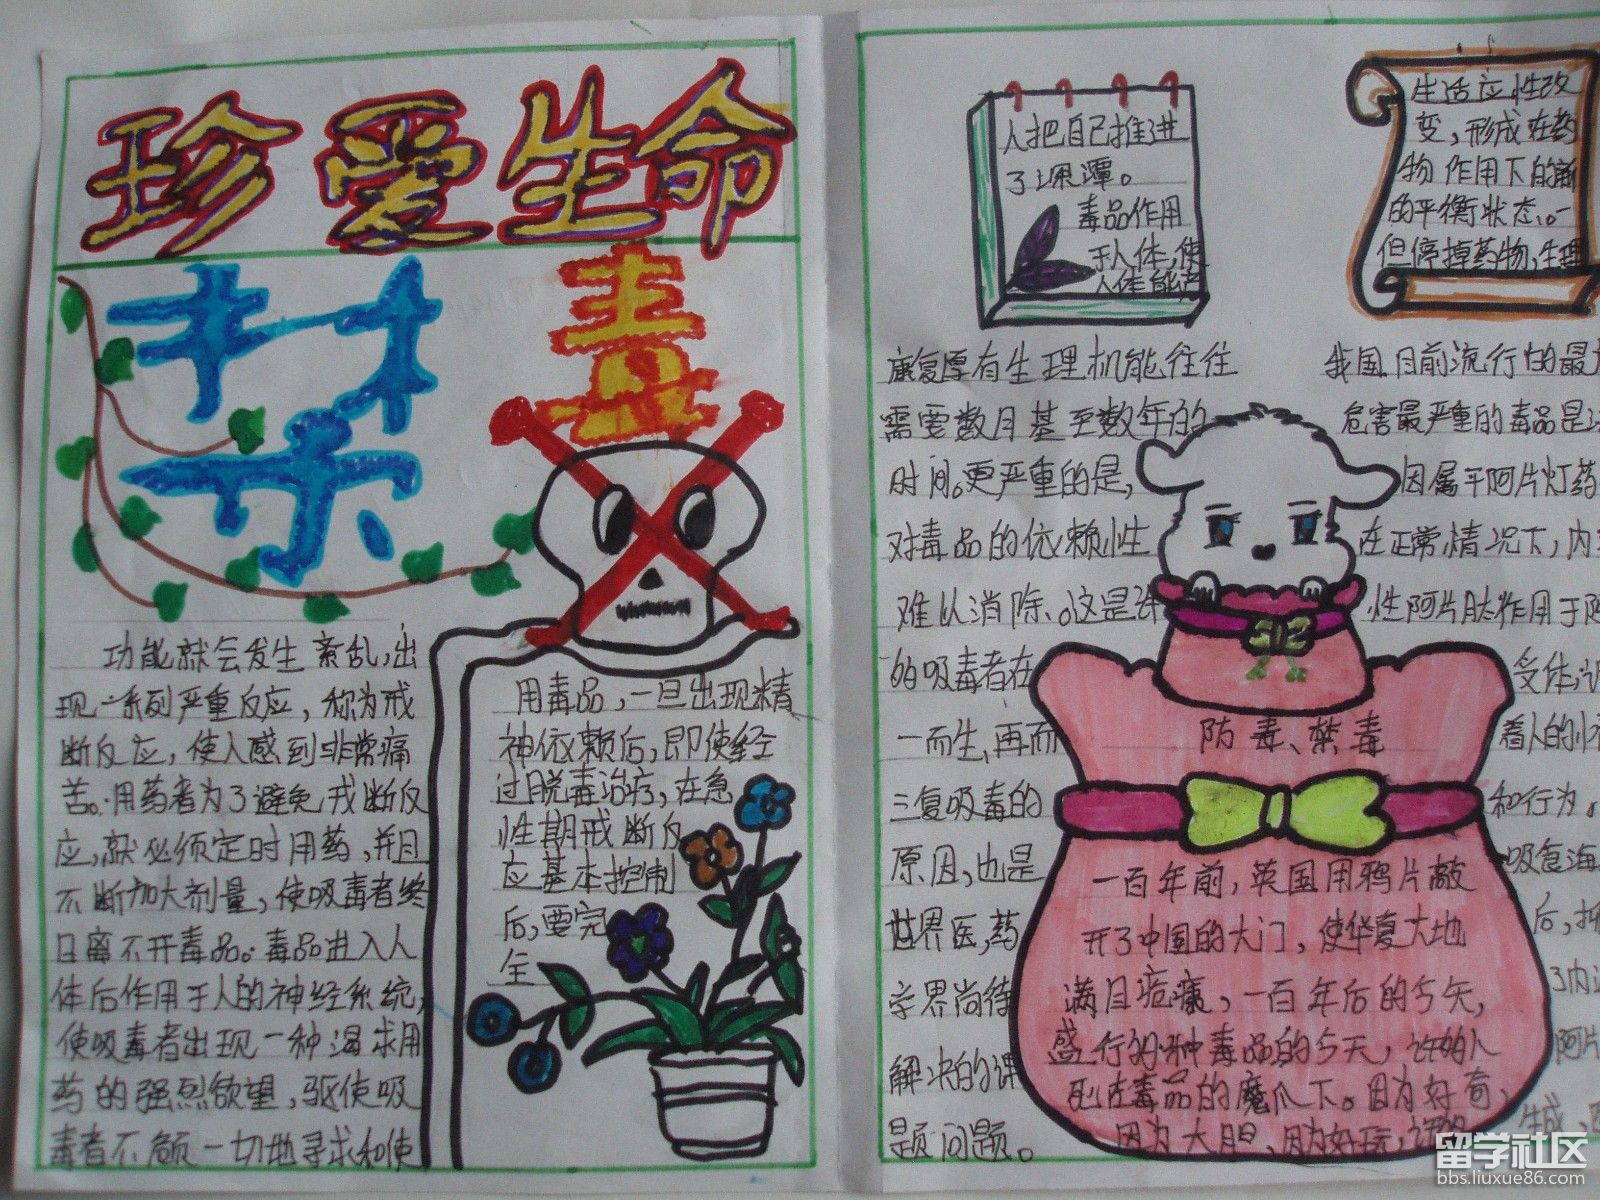 珍爱生命
禁
毒
功能就会发生紊乱,出
现一系列严重反应,称为戒
断反应,使人感到非常痛
苦。用药者为了避免戒断反
应,就必须定时用药,并且
不断加大剂量,使吸毒者终
日离不开毒品。毒品进入人
体后作用于人的神经系统,
使吸毒者出现一种渴求用
药的强烈欲望,驱使吸
毒者不顾一切地寻求和使
用毒品,一旦出现精
神依赖后,即使经
过脱毒治疗,在急
性期戒断反
应基本控制
后,要完
全
康复原有生理机能往往
需要数月甚至数年的
时间。更严重的是,
对毒品的依赖性
难以消除。这是许
的吸毒者在
一而生、再而
三复吸毒的
原因,也是
世界医,药
学界尚待
解决的课
题问题。
人把自己推进
了深潭。
毒品作用
于人体,使
人体能产
生适应性改
变,形成在药
物作用下的新
的平衡状态。一
但停掉药物,生理
我国目前流行的最
危害最严重的毒品是
因属于阿片灯药
在正常情况下,内
性阿片肽作用于阿
受体,
着人的
和行为。
吸食海
后,
了内
阿片
生成,
防毒、禁毒
一百年前,英国用鸦片敲
开了中国的大门,使华夏大地
满目疮痍,一百年后的今天,
盛行的种毒品的今天,许的人
死在毒品的魔爪下。因为好奇,
因为大胆,因为好玩,
留学社区
bbs.liuxue86.com